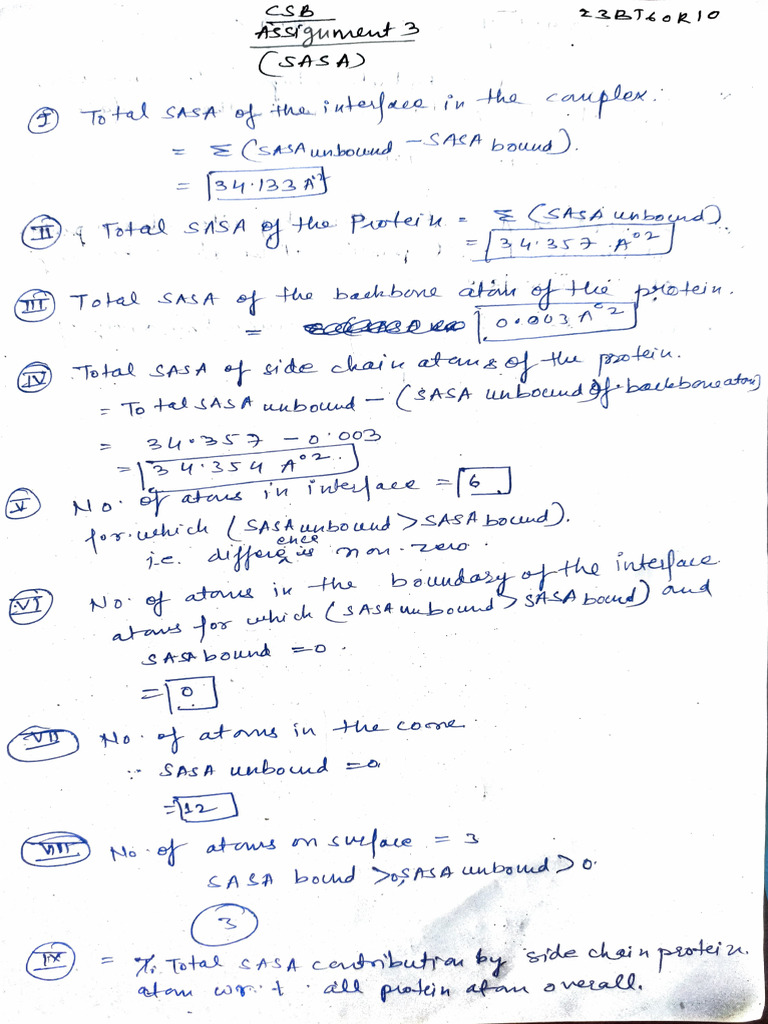 CSB
23BT60R10
Assignment 3
(SASA)
I Total SASA of the interface in the complex.
= Σ (SASA unbound - SASA bound).
= 34.133 A°²
II Total SASA of the Protein = Σ (SASA unbound)
= 34.357 A°²
III Total SASA of the backbone atom of the protein.
= 0.003 A°²
IV Total SASA of side chain atoms of the protein.
= Total SASA unbound - (SASA unbound of backbone atom)
= 34.357 - 0.003
= 34.354 A°²
V No. of atoms in interface = 6
for which (SASA unbound > SASA bound).
i.e. difference is non-zero.
VI No. of atoms in the boundary of the interface
atoms for which (SASA unbound > SASA bound) and
SASA bound = 0.
= 0
VII No. of atoms in the core.
∵ SASA unbound = 0
= 12
VIII No. of atoms on surface = 3
SASA bound > 0, SASA unbound > 0.
3
IX = % Total SASA contribution by side chain protein
atom w.r.t. all protein atom overall.